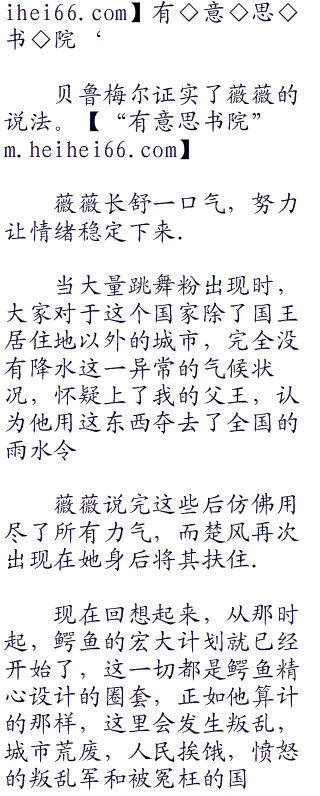 ihei66.com】有◇意◇思◇
书◇院‘
贝鲁梅尔证实了薇薇的
说法。【“有意思书院”
m.heihei66.com】
薇薇长舒一口气，努力
让情绪稳定下来.
当大量跳舞粉出现时，
大家对于这个国家除了国王
居住地以外的城市，完全没
有降水这一异常的气候状
况，怀疑上了我的父王，认
为他用这东西夺去了全国的
雨水令
薇薇说完这些后仿佛用
尽了所有力气，而楚风再次
出现在她身后将其扶住.
现在回想起来，从那时
起，鳄鱼的宏大计划就已经
开始了，这一切都是鳄鱼精
心设计的圈套，正如他算计
的那样，这里会发生叛乱，
城市荒废，人民挨饿，愤怒
的叛乱军和被冤枉的国